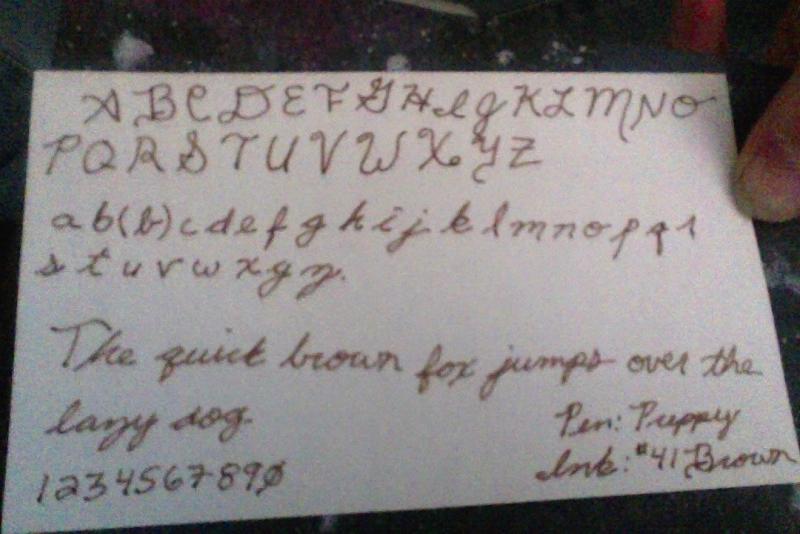 A B C D E F G H I J K L M N O
P Q R S T U V W X Y Z
a b (b) c d e f g h i j k l m n o p q r
s t u v w x y z.
The quick brown fox jumps over the
lazy dog.
Pen: Preppy
1234567890
Ink: #41 Brown